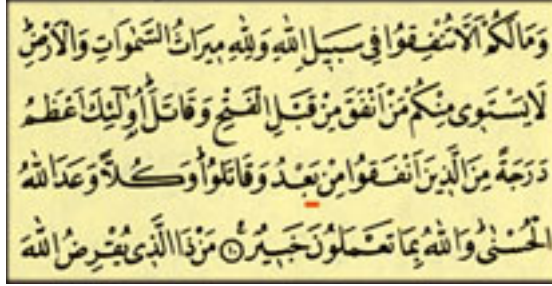 وَمَا لَكُمْ اَلَّا تُنْفِقُوا فِي سَبِيلِ اللّٰهِ وَلِلّٰهِ مِيرَاثُ السَّمٰوَاتِ وَالْاَرْضِ
لَا يَسْتَوِي مِنْكُمْ مَنْ اَنْفَقَ مِنْ قَبْلِ الْفَتْحِ وَقَاتَلَ اُولٰئِكَ اَعْظَمُ
دَرَجَةً مِنَ الَّذِينَ اَنْفَقُوا مِنْ بَعْدُ وَقَاتَلُوا وَكُلًّا وَعَدَ اللّٰهُ
الْحُسْنٰى وَاللّٰهُ بِمَا تَعْمَلُونَ خَبِيرٌ ۝١٠ مَنْ ذَا الَّذِي يُقْرِضُ اللّٰهَ